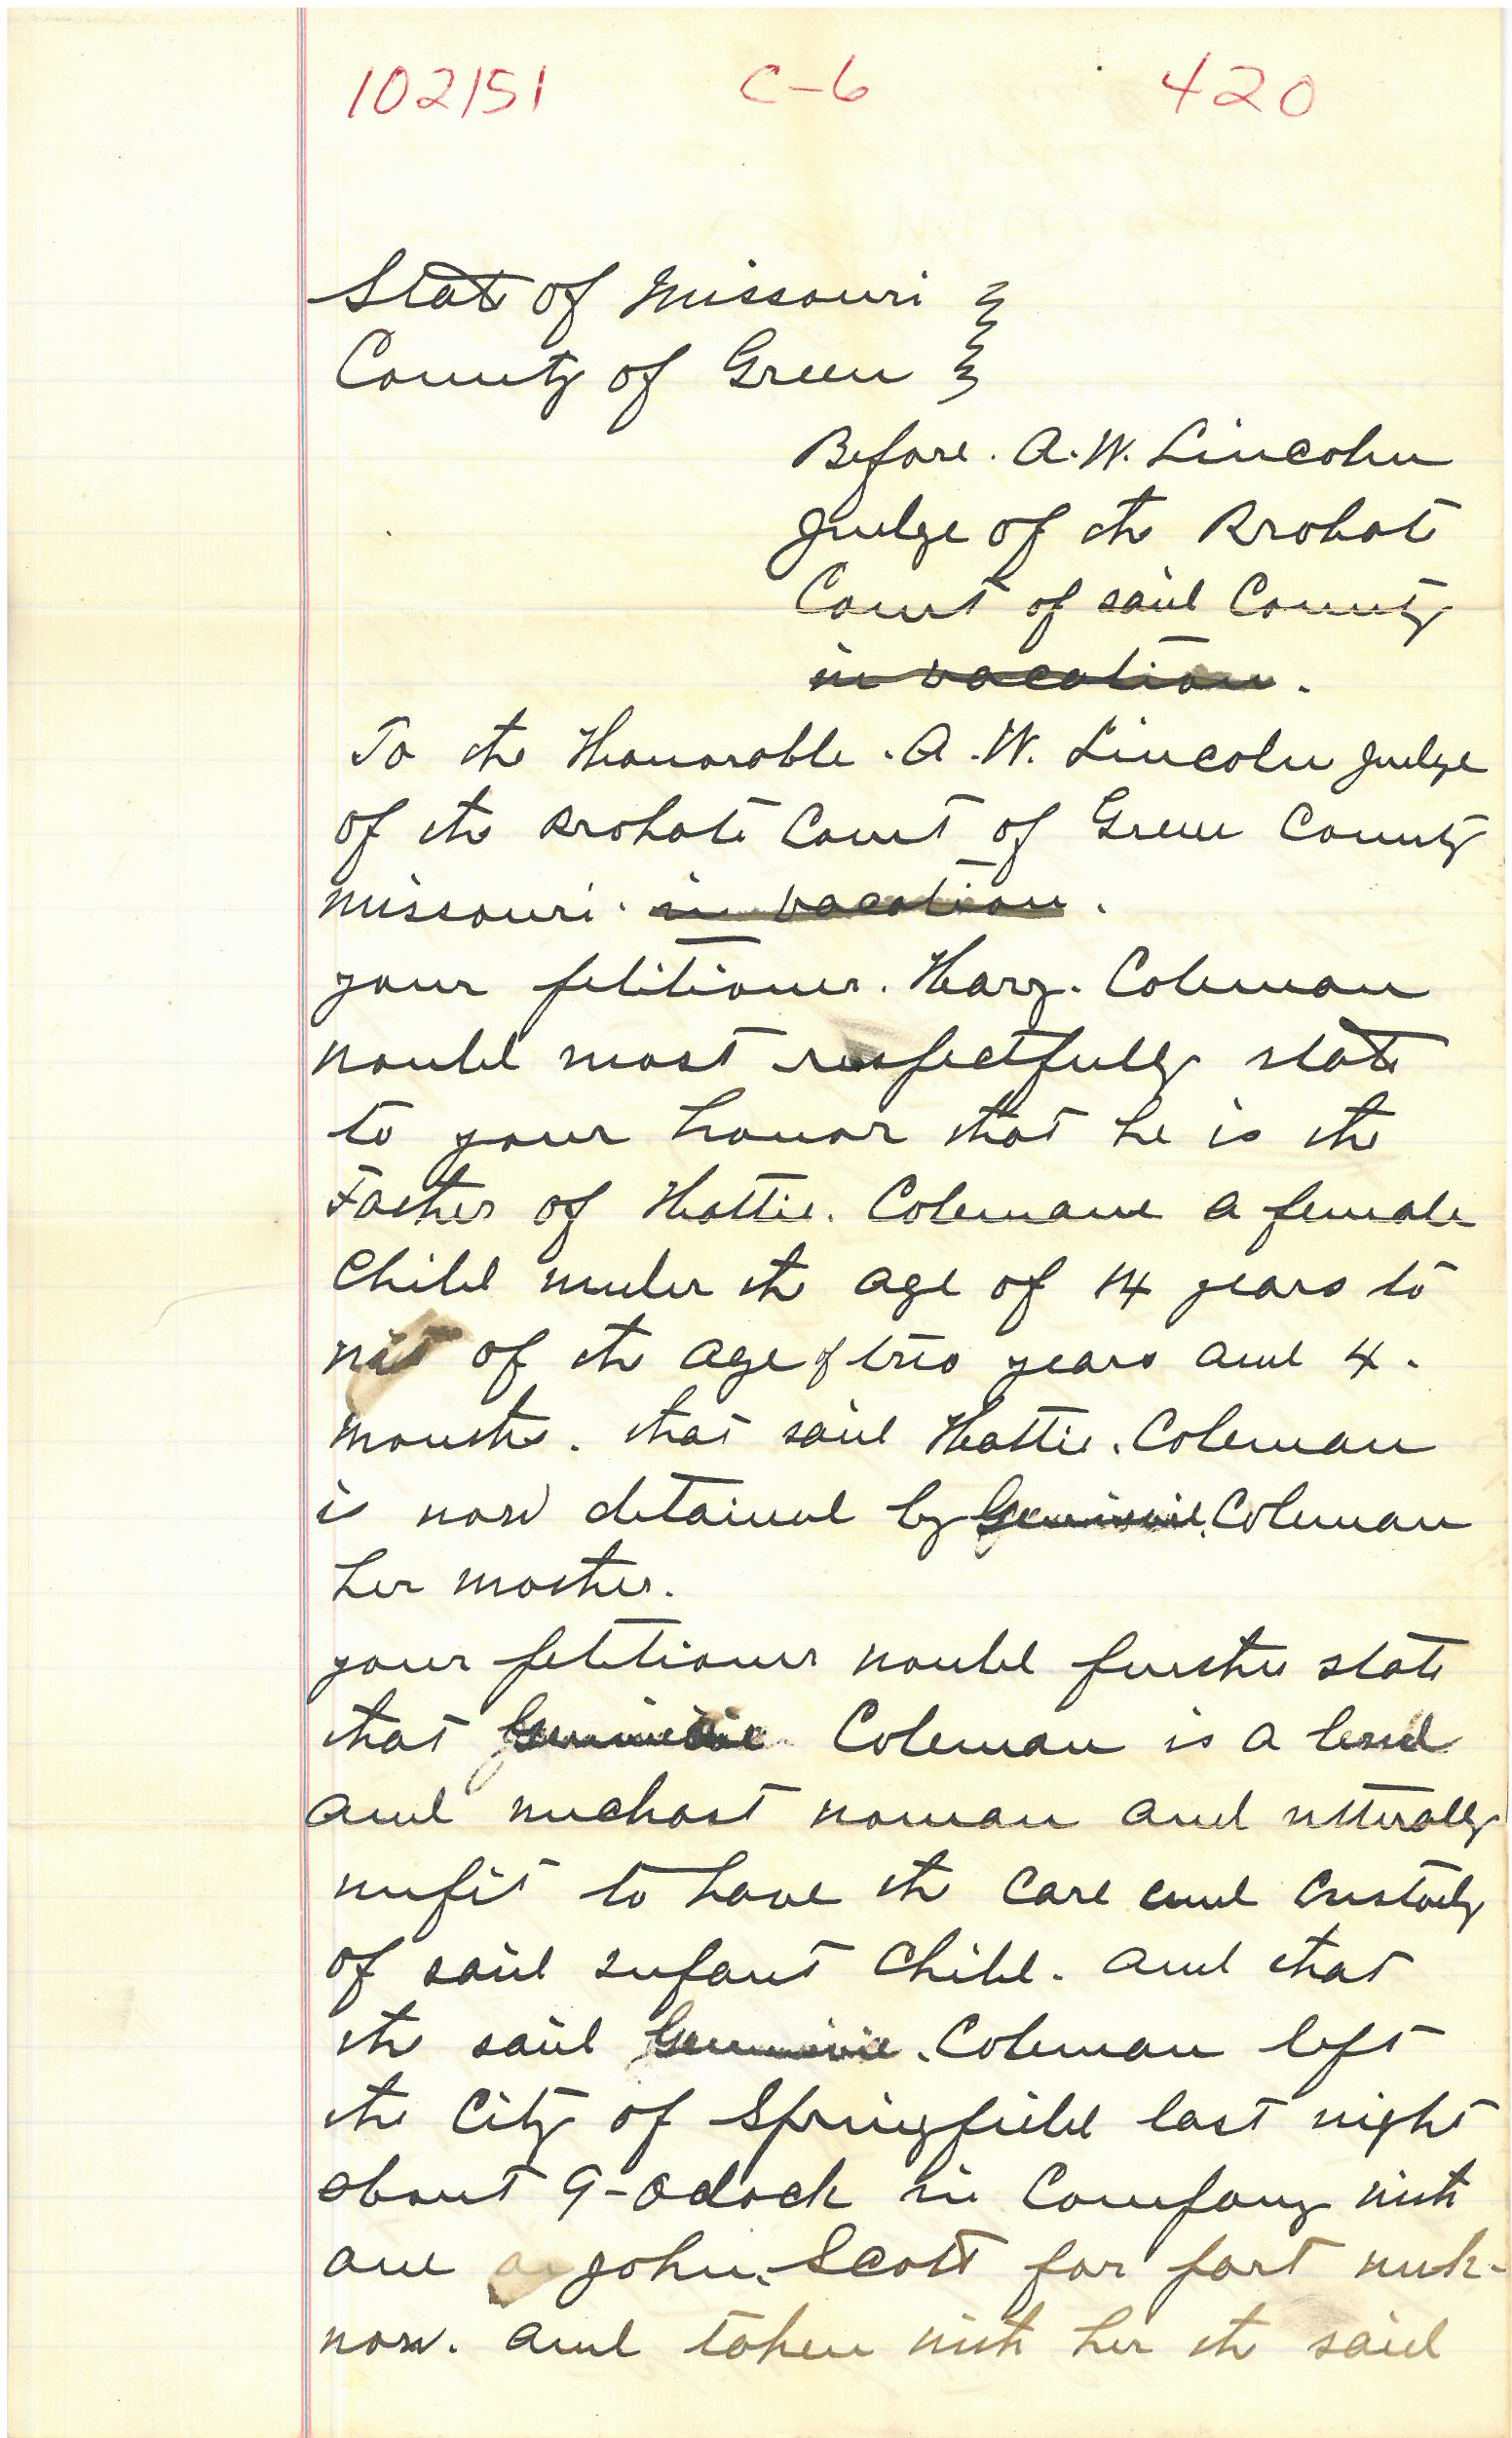 102151 C-6 420
State of Missouri
County of Green
Before. A.W. Lincoln
Judge of the Probate
Court of said County
in vacation.
To the Honorable. A.W. Lincoln Judge
of the Probate Court of Green County
Missouri. in vacation.
your petitioner. Harry. Coleman
would most respectfully state
to your honor that he is the
Father of Hattie. Colemane a female
Child under the age of 14 years to
wit of the age of two years and 4.
months. that said Hattie. Coleman
is now detained by Coleman
her mother.
your petitioner would further state
that Coleman is a lewd
and unchast woman and utterally
unfit to have the care and custody
of said infant child. and that
the said Coleman left
the City of Springfield last night
about 9-Oclock in Company with
one John. Scott for part unk-
now. and taken with her the said